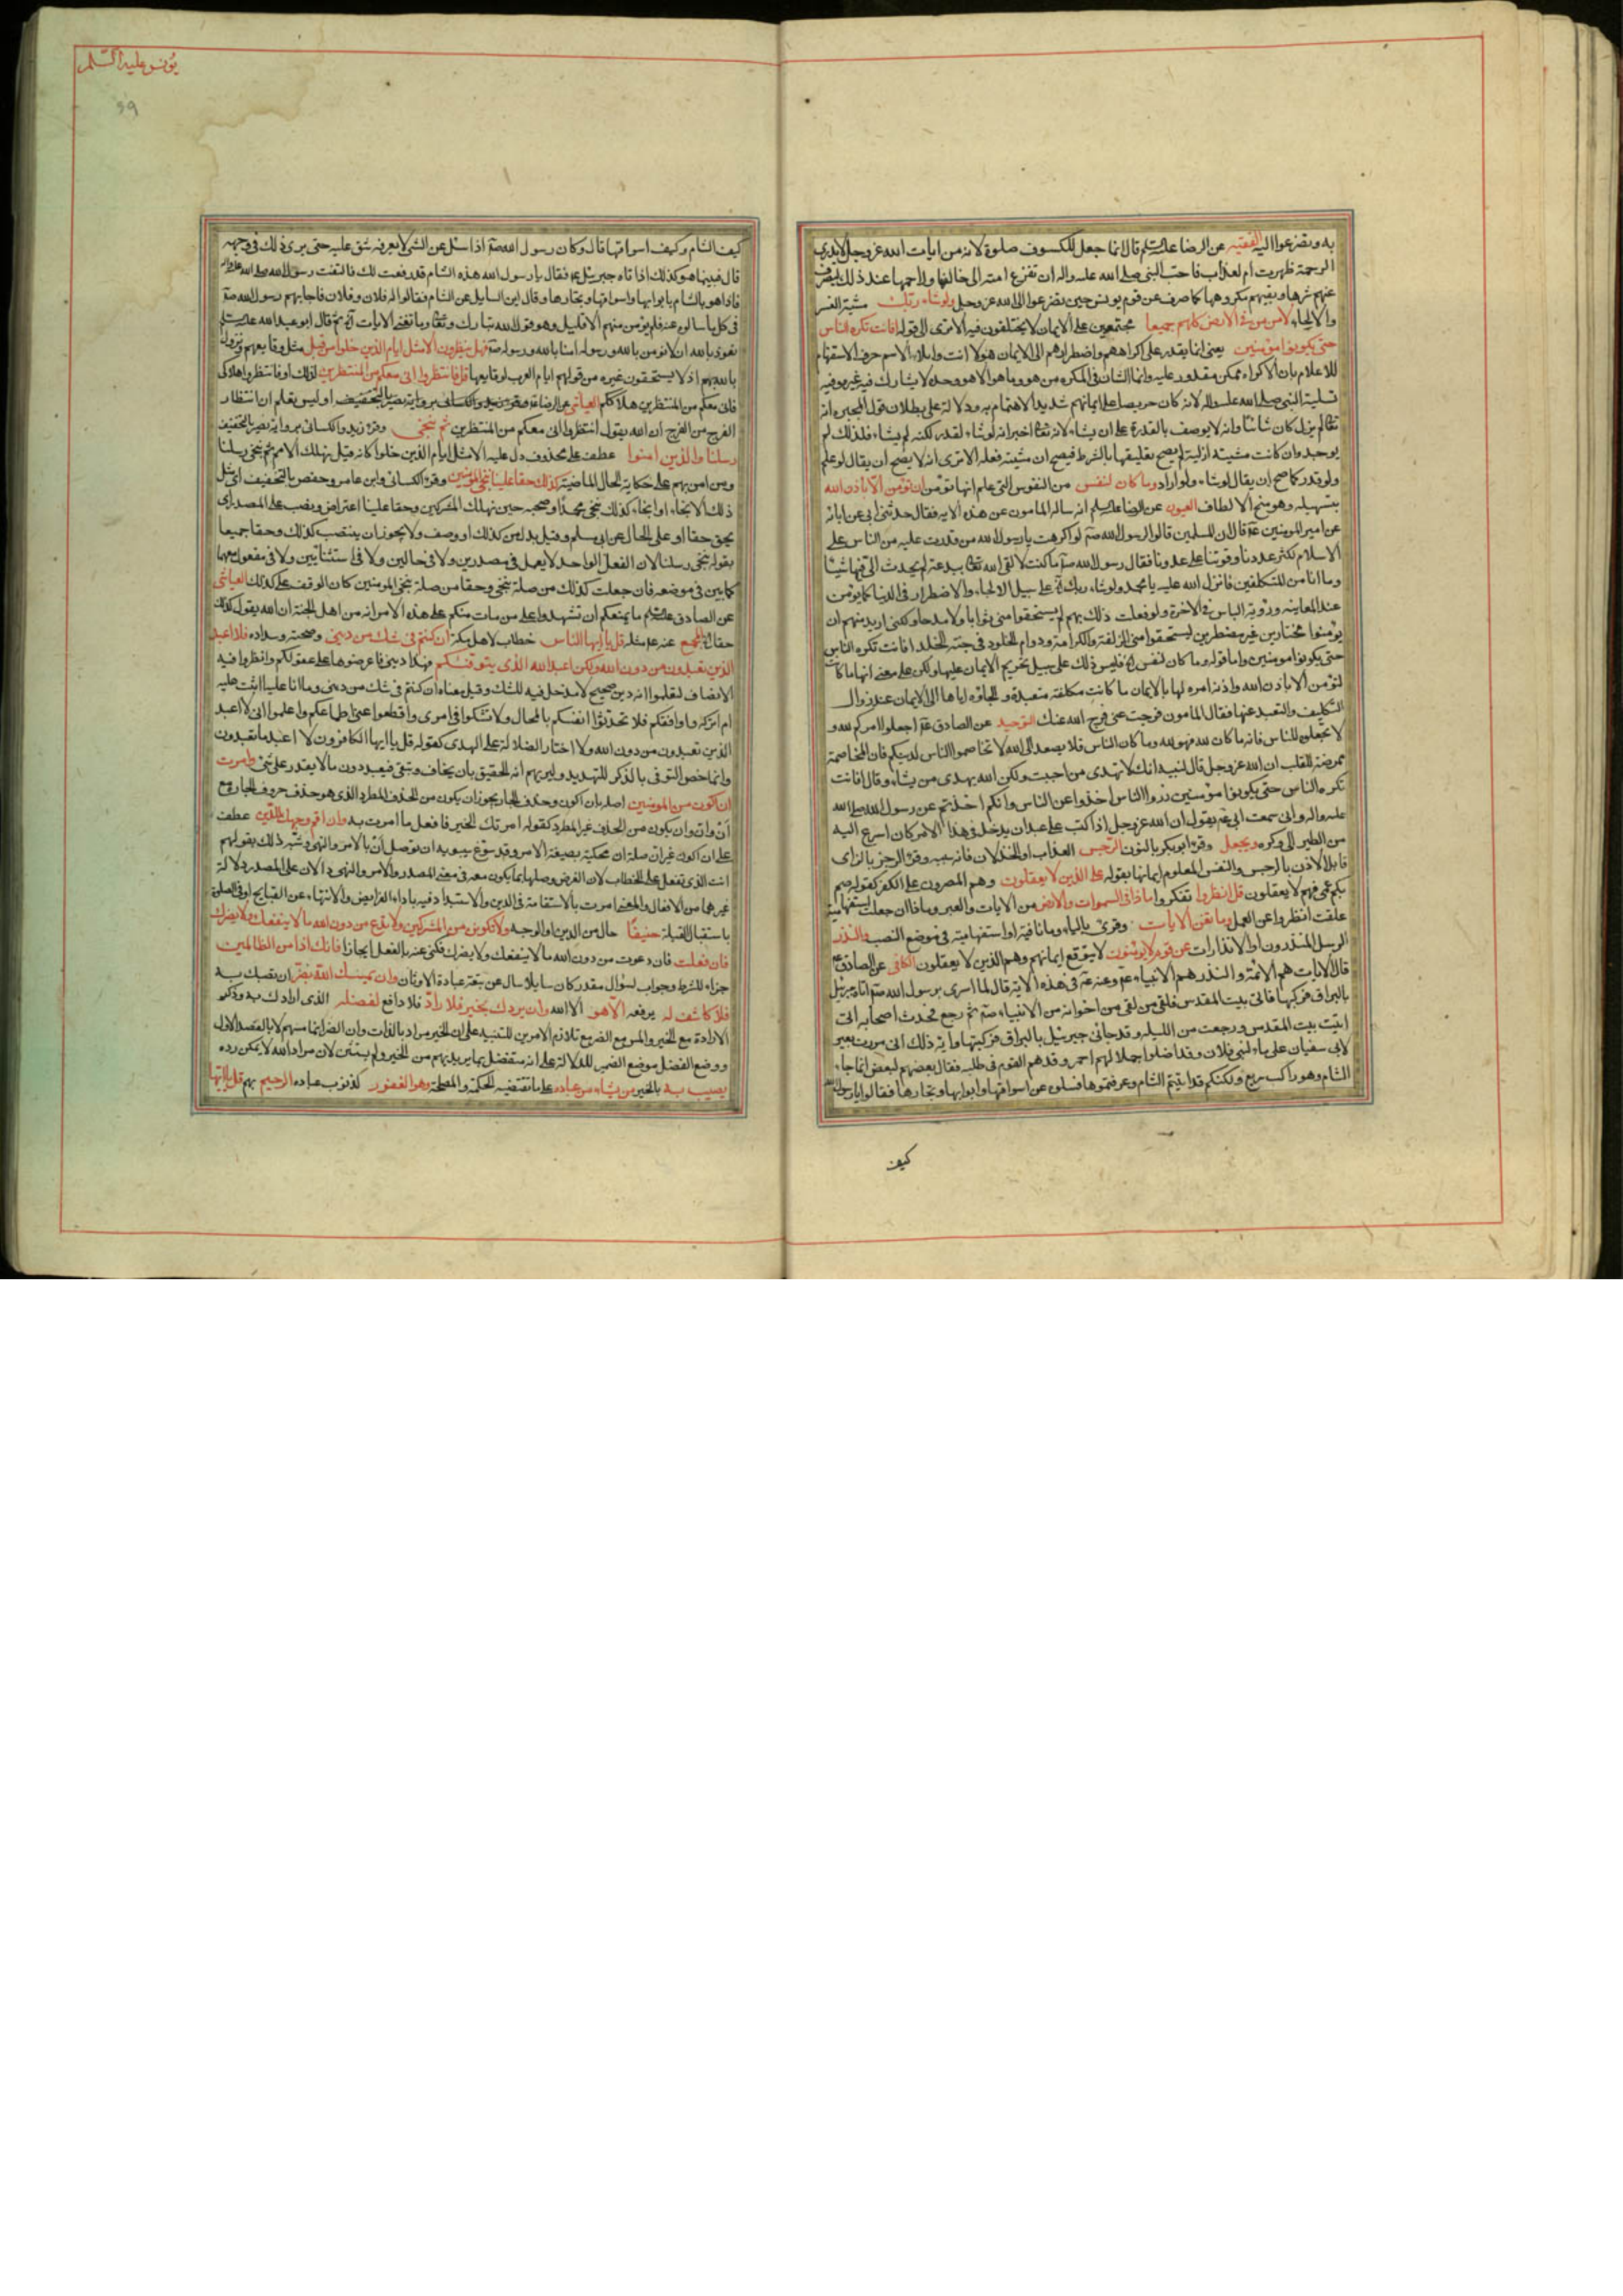 به وتضرعوا اليه الفقيه عن الرضا عليه السلم قال انما جعل للكسوف صلوة لانه من ايات الله عز وجل لا يدرى
الرحمة ظهرت ام لعذاب فاحب النبى صلى الله عليه واله ان تفزع امته الى خالقها وراحمها عند ذلك ليصرف
عنهم شرها ويقيهم مكروهها كما صرف عن قوم يونس حين تضرعوا الى الله عز وجل ولو شاء ربك مشية القسر
والالجاء لامن من فى الارض كلهم جميعا مجتمعين على الايمان لا يختلفون فيه الا ترى الى قوله افانت تكره الناس
حتى يكونوا مؤمنين يعنى انما يقدر على اكراههم واضطرارهم الى الايمان هو لا انت وايلاء الاسم حرف الاستفهام
للاعلام بان الاكراه ممكن مقدور عليه وانما الشان فى المكره من هو وما هو الا هو وحده لا يشارك فيه غيره وفيه
تسلية النبى صلى الله عليه واله لانه كان حريصا على ايمانهم شديد الاهتمام به ودلالة على بطلان قول المجبره انه
تعالى لم يزل كان شائيا وانه لا يوصف بالقدرة على ان يشاء لانه تعالى اخبر انه لو شاء لقدر لكنه لم يشاء فلذلك لم
يوجد وان كانت مشيته ازلية لم يصح تعليقها بالشرط فيصح ان مشيته فعله الا ترى انه لا يصح ان يقال لو علم
ولو قدر كما صح ان يقال لو شاء ولو اراد وما كان لنفس من النفوس التى علم انها تؤمن ان تؤمن الا باذن الله
بتسهيله وهو منح الالطاف العيون عن الرضا عليه السلم انه ساله المامون عن هذه الايه فقال حدثنى ابى عن ابائه
عن امير المؤمنين قال ان المسلمين قالوا لرسول الله لو اكرهت يا رسول الله من قدرت عليه من الناس على
الاسلام لكثر عددنا وقوتنا على عدونا فقال رسول الله ما كنت لالقى الله تعالى ببدعة لم يحدث الى فيها شيئا
وما انا من المتكلفين فانزل الله عليه يا محمد ولو شاء ربك على سبيل الالجاء والاضطرار فى الدنيا كما يؤمن
عند المعاينه ورؤية الباس فى الاخرة ولو فعلت ذلك بهم لم يستحقوا منى ثوابا ولا مدحا ولكنى اريد منهم ان
يؤمنوا مختارين غير مضطرين ليستحقوا منى الزلفة والكرامة ودوام الخلود فى جنة الخلد افانت تكره الناس
حتى يكونوا مومنين واما قوله وما كان لنفس فليس ذلك على سبيل تحريم الايمان عليها ولكن على معنى انها ما كانت
لتؤمن الا باذن الله واذنه امره لها بالايمان ما كانت مكلفة متعبدة والجاؤه اياها الى الايمان عند زوال
التكليف والتعبد عنها فقال المامون فرجت عنى فرج الله عنك التوحيد عن الصادق اجعلوا امركم لله و
لا تجعلوه للناس فانه ما كان لله فهو لله وما كان للناس فلا يصعد الى الله لا تخاصموا الناس لدينكم فان المخاصمة
ممرضة للقلب ان الله عز وجل قال لنبيه انك لا تهدى من احببت ولكن الله يهدى من يشاء وقال افانت
تكره الناس حتى يكونوا مؤمنين ذروا الناس فان الناس اخذوا عن الناس وانكم اخذتم عن رسول الله صلى الله
عليه واله وانى سمعت ابى يقول ان الله عز وجل اذا كتب على عبد ان يدخل فى هذا الامر كان اسرع اليه
من الطير الى وكره ويجعل وقرء ابو بكر بالنون الرجس العذاب او الخذلان فانه سببه وقرء الرجز بالزاى
قابل الاذن بالرجس والنفس المعلوم ايمانها بقوله على الذين لا يعقلون وهم المصرون على الكفر كقوله صم
بكم عمى فهم لا يعقلون قل انظروا تفكروا ماذا فى السموات والارض من الايات والعبر وماذا ان جعلت استفهامية
علقت انظروا عن العمل وما تغنى الايات وقرئ بالياء وما نافية او استفهامية فى موضع النصب والنذر
الرسل المنذرون او الانذارات عن قوم لا يؤمنون لا يتوقع ايمانهم وهم الذين لا يعقلون الكافى عن الصادق
قال الايات هم الائمة والنذر هم الانبياء وعنه فى هذه الاية قال لما اسرى برسول الله اتاه جبرئيل
بالبراق فركبها فاتى بيت المقدس فلقى من لقى من اخوانه من الانبياء ثم رجع فحدث اصحابه انى
اتيت بيت المقدس ورجعت من الليله وقد جائنى جبرئيل بالبراق فركبتها واية ذلك انى مررت بعير
لابى سفيان على ماء لبنى فلان وقد اضلوا جملا لهم احمر وقد هم القوم فى طلبه فقال بعضهم لبعض انما جاء
الشام وهو راكب سريع ولكنكم قد اتيتم الشام وعرفتموها فسلوه عن اسواقها وابوابها وتجارها فقالوا يا رسول الله
كيف
يونس عليه السلم
كيف الشام وكيف اسواقها قال وكان رسول الله اذا سئل عن الشئ لا يعرفه شق عليه حتى يرى ذلك فى وجهه
قال فبينما هو كذلك اذا اتاه جبرئيل فقال يا رسول الله هذه الشام قد رفعت لك فالتفت رسول الله صلى الله عليه واله
فاذا هو بالشام بابوابها واسواقها وتجارها وقال اين السايل عن الشام فقالوا له فلان وفلان فاجابهم رسول الله
فى كل ما سالوه عنه فلم يؤمن منهم الا قليل وهو قول الله تبارك وتعالى وما تغنى الايات ثم قال ابو عبد الله عليه السلم
نعوذ بالله ان لا نؤمن بالله ورسوله امنا بالله ورسوله فهل ينظرون الا مثل ايام الذين خلوا من قبلهم مثل وقايعهم ونزول
باس الله بهم اذ لا يستحقون غيره من قولهم ايام العرب لوقايعها قل فانتظروا انى معكم من المنتظرين لذلك او فانتظروا هلاكى
فانى معكم من المنتظرين هلاككم العياشى عن الرضا اوليس تعلم ان انتظار
الفرج من الفرج ان الله يقول انتظروا انى معكم من المنتظرين ثم ننجى وقرء زيد والكسائى برواية نصير بالتخفيف
رسلنا والذين امنوا عطف على محذوف دل عليه الا مثل ايام الذين خلوا كانه قيل نهلك الامم ثم ننجى رسلنا
ومن امن بهم على حكاية الحال الماضية كذلك حقا علينا ننجى المؤمنين وقرء الكسائى وابن عامر وحفص بالتخفيف اى مثل
ذلك الانجاء او انجاء كذلك ننجى محمدا وصحبه حين نهلك المشركين وحقا علينا اعتراض ونصب على المصدر اى
يحق حقا او على الحال عن ابى مسلم وقيل بدل من كذلك او وصف ولا يجوز ان ينتصب كذلك وحقا جميعا
بقوله ننجى رسلنا لان الفعل الواحد لا يعمل فى مصدرين ولا فى حالين ولا فى استثنائين ولا فى مفعول معهما
كما بين فى موضعه فان جعلت كذلك من صلة ننجى وحقا من صلة ننجى المومنين كان الوقف على كذلك العياشى
عن الصادق عليه السلم ما يمنعكم ان تشهدوا على من مات منكم على هذه الامر انه من اهل الجنة ان الله يقول كذلك
حقا المجمع عنه مثله قل يا ايها الناس خطاب لاهل مكة ان كنتم فى شك من دينى وصحته وسداده فلا اعبد
الذين تعبدون من دون الله ولكن اعبد الله الذى يتوفيكم فهذا دينى فاعرضوها على عقولكم وانظروا فيه
الانصاف لتعلموا انه دين صحيح لا مدخل فيه للشك وقيل معناه ان كنتم فى شك من دينى وما انا عليه اثبت عليه
ام اتركه واوافقكم فلا تحدثوا انفسكم بالمحال ولا تشكوا فى امرى واقطعوا عنى اطماعكم واعلموا انى لا اعبد
الذين تعبدون من دون الله ولا اختار الضلالة على الهدى كقوله قل يا ايها الكافرون لا اعبد ما تعبدون
وانما خص التوفى بالذكر للتهديد وليريهم انه الحقيق بان يخاف ويتقى فيعبد دون ما لا يقدر على شئ وامرت
ان اكون من المومنين اصله بان اكون وحذف الجار يجوز ان يكون من الحذف المطرد الذى هو حذف حروف الجار مع
ان وان وان يكون من الحذف غير المطرد كقوله امرتك الخير فافعل ما امرت به وان اقم وجهك للدين عطف
على ان اكون غير ان صلة ان محكية بصيغة الامر وقد سوغ سيبويه ان توصل ان بالامر والنهى وشبه ذلك بقولهم
انت الذى تفعل على الخطاب لان الغرض وصلها بما يكون معه فى معنى المصدر والامر والنهى دالان على المصدر دلالة
غيرهما من الافعال والمعنى امرت بالاستقامة فى الدين والاستبداد فيه باداء الفرايض والانتهاء عن القبايح او فى الصلوة
باستقبال القبلة حنيفا حال من الدين او الوجه ولا تكونن من المشركين ولا تدع من دون الله ما لا ينفعك ولا يضرك
فان فعلت فان دعوت من دون الله ما لا ينفعك ولا يضرك فكنى عنه بالفعل ايجازا فانك اذا من الظالمين
جزاء للشرط وجواب لسؤال مقدر كان سايلا سال عن تبعة عبادة الاوثان وان يمسسك الله بضر ان يصبك به
فلا كاشف له يرفعه الا هو الا الله وان يردك بخير فلا راد فلا دافع لفضله الذى ارادك به وذكر
الارادة مع الخير والمس مع الضر مع تلازم الامرين للتنبيه على ان الخير مراد بالذات وان الضر انما مسهم لا بالقصد الاول
ووضع الفضل موضع الضمير للدلالة على انه متفضل بما يريد بهم من الخير ولم يستثن لان مراد الله لا يمكن رده
يصيب به بالخير من يشاء من عباده على ما تقتضيه الحكمة والمصلحة وهو الغفور لذنوب عباده الرحيم بهم قل يا ايها